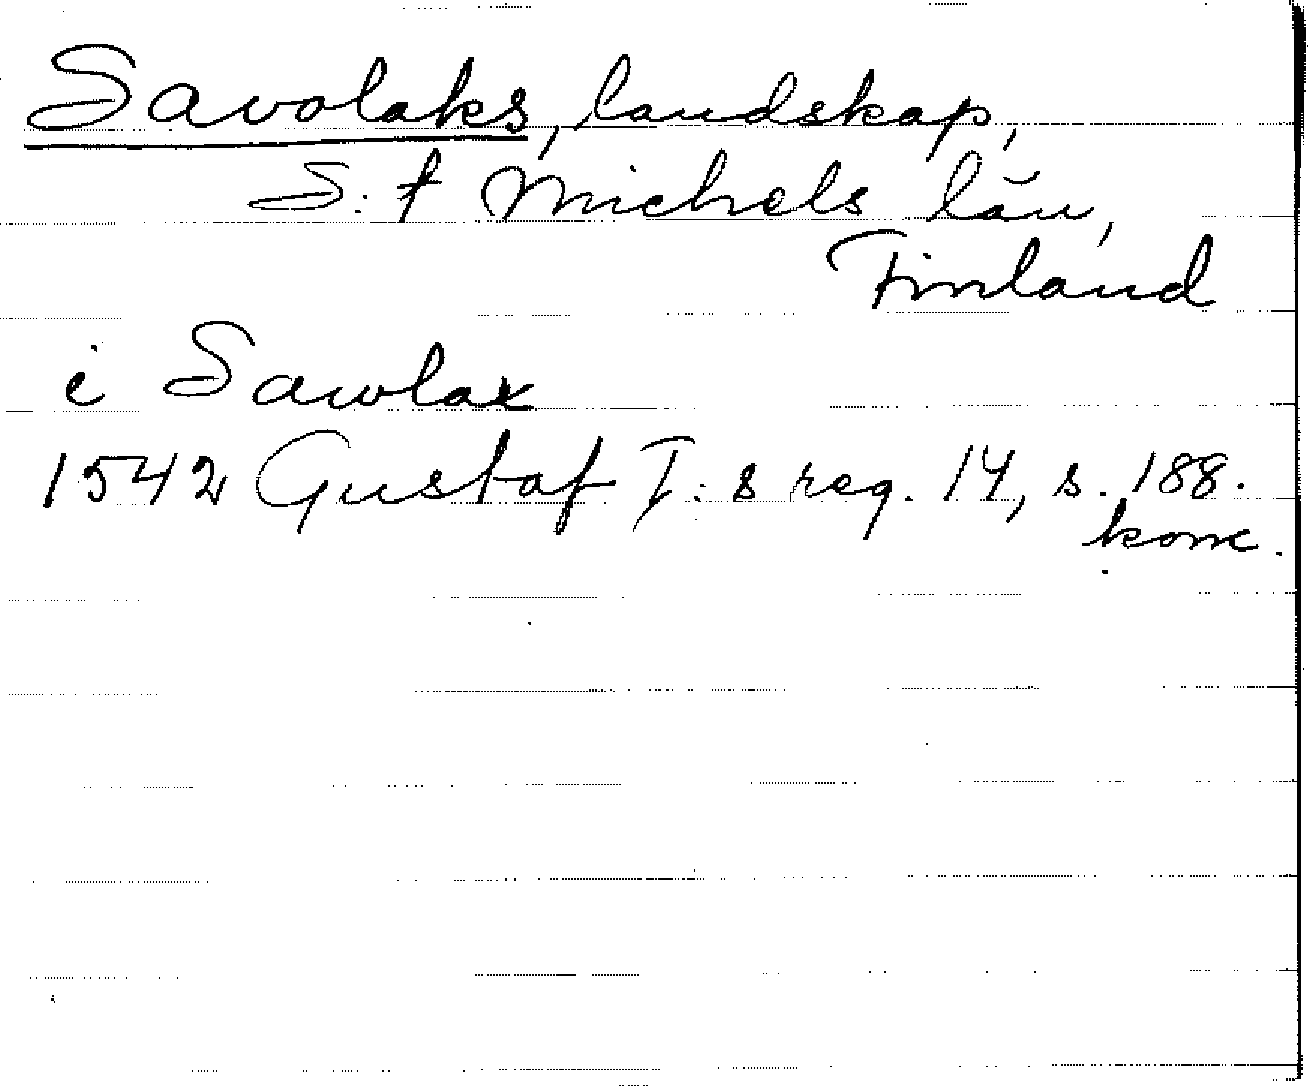 Savolaks, landskap,
S:t Michels län,
Finland
i Sawlax
1542 Gustaf I:s reg. 14, s. 188.
konc.